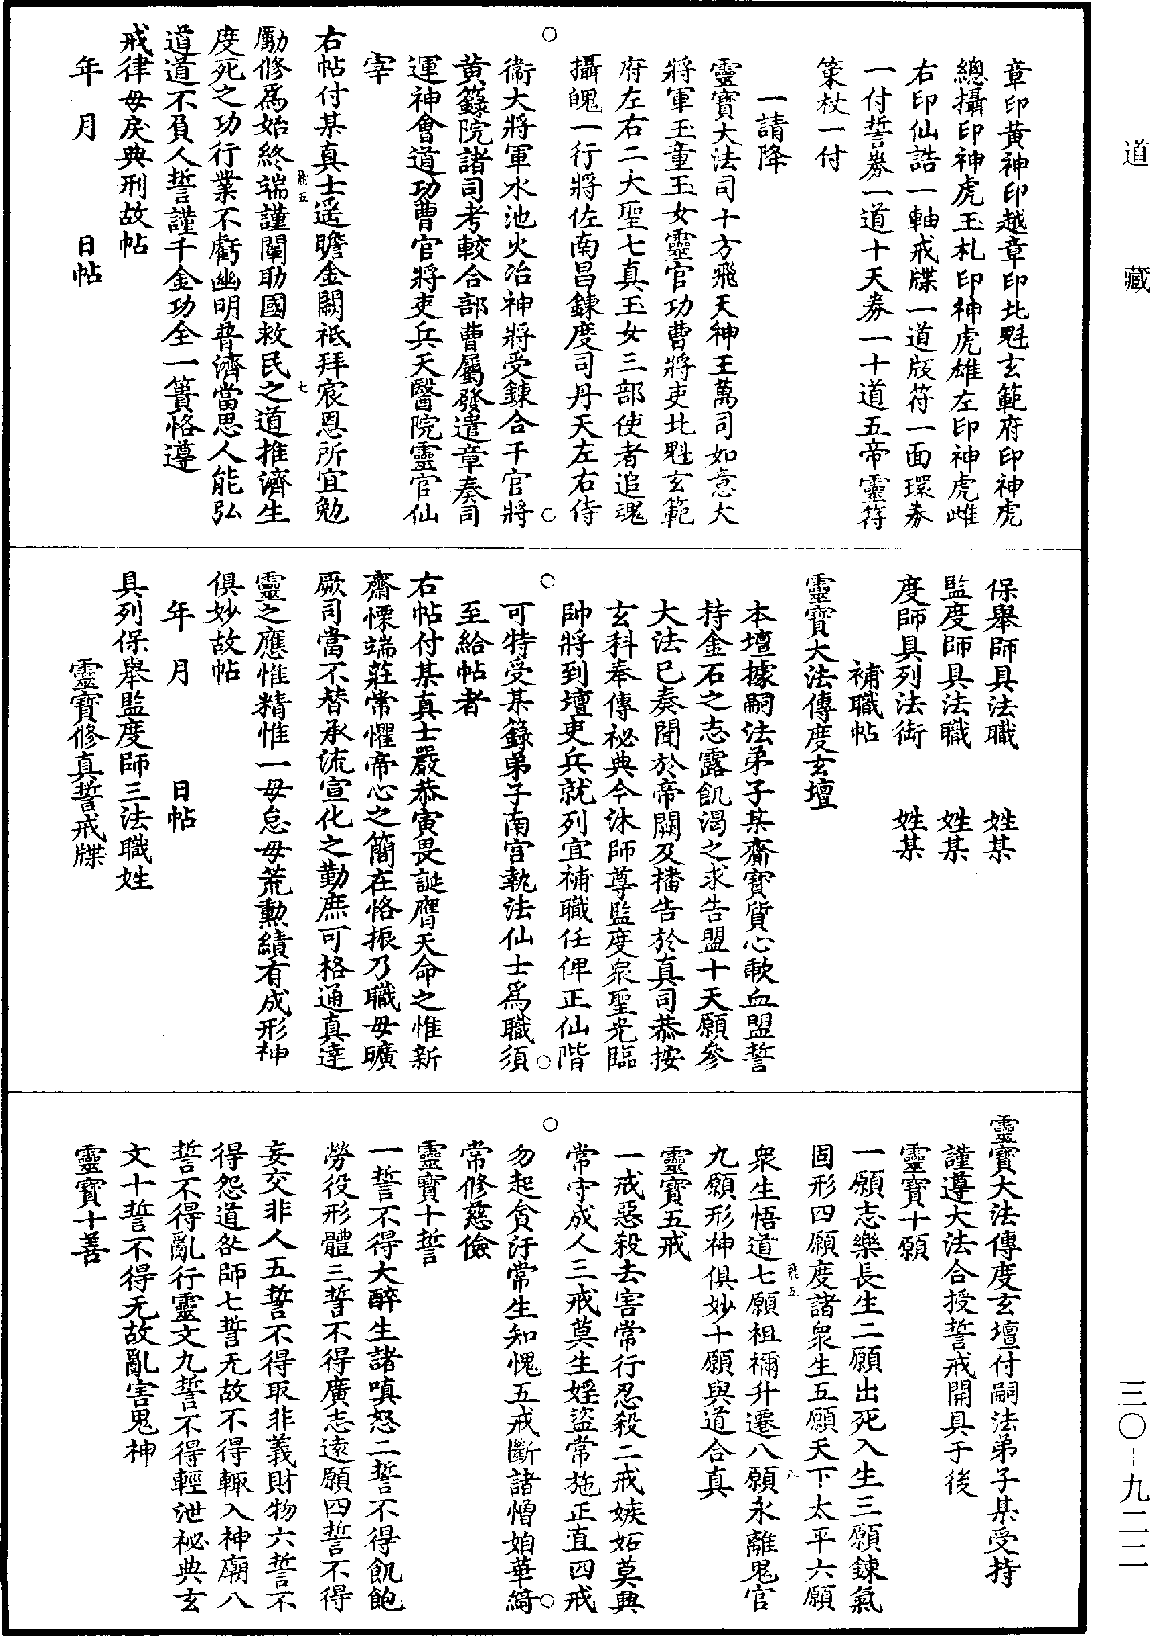 道藏
章印黄神印越章印北魁玄範府印神虎
總攝印神虎玉札印神虎雄左印神虎雌
右印仙誥一軸戒牒一道版符一面環券
一付誓券一道十天券一十道五帝靈符
策杖一付
一請降
靈寶大法司十方飛天神王萬司如意大
將軍玉童玉女靈官功曹將吏北魁玄範
府左右二大聖七真玉女三部使者追魂
攝魄一行將佐南昌鍊度司丹天左右侍
衞大將軍水池火冶神將受鍊合千官將
黄籙院諸司考較合部曹屬發遣章奏司
運神會道功曹官將吏兵天醫院靈官仙
宰
右帖付某真士遥瞻金闕祇拜宸恩所宜勉
勵修爲始終端謹闡助國救民之道推濟生
度死之功行業不虧幽明普濟當思人能弘
道道不負人誓謹千金功全一簣恪遵
戒律毋戾典刑故帖
年 月 日帖
保舉師具法職 姓某
監度師具法職 姓某
度師具列法銜 姓某
補職帖
靈寶大法傳度玄壇
本壇據嗣法弟子某齋寶質心歃血盟誓
持金石之志露飢渴之求告盟十天願參
大法已奏聞於帝闕及播告於真司恭按
玄科奉傳祕典今沐師尊監度衆聖光臨
帥將到壇吏兵就列宜補職任俾正仙階
可特受某籙弟子南宫執法仙士爲職須
至給帖者
右帖付某真士嚴恭寅畏誕膺天命之惟新
齋慄端莊常懼帝心之簡在恪振乃職毋曠
厥司當不替承流宣化之勤庶可格通真達
靈之應惟精惟一毋怠毋荒勳績有成形神
俱妙故帖
年 月 日帖
具列保舉監度師三法職姓
靈寶修真誓戒牒
靈寶大法傳度玄壇付嗣法弟子某受持
謹遵大法合授誓戒開具于後
靈寶十願
一願志樂長生二願出死入生三願鍊氣
固形四願度諸衆生五願天下太平六願
衆生悟道七願祖禰升遷八願永離鬼官
九願形神俱妙十願與道合真
靈寶五戒
一戒惡殺去害常行忍殺二戒嫉妬莫興
常守成人三戒莫生婬盜常施正直四戒
勿起貪汙常生知愧五戒斷諸憎妒華綺
常修慈儉
靈寶十誓
一誓不得大醉生諸嗔怒二誓不得飢飽
勞役形體三誓不得廣志遠願四誓不得
妄交非人五誓不得取非義財物六誓不
得怨道咎師七誓无故不得輒入神廟八
誓不得亂行靈文九誓不得輕泄祕典玄
文十誓不得无故亂害鬼神
靈寶十善
三〇-九二二